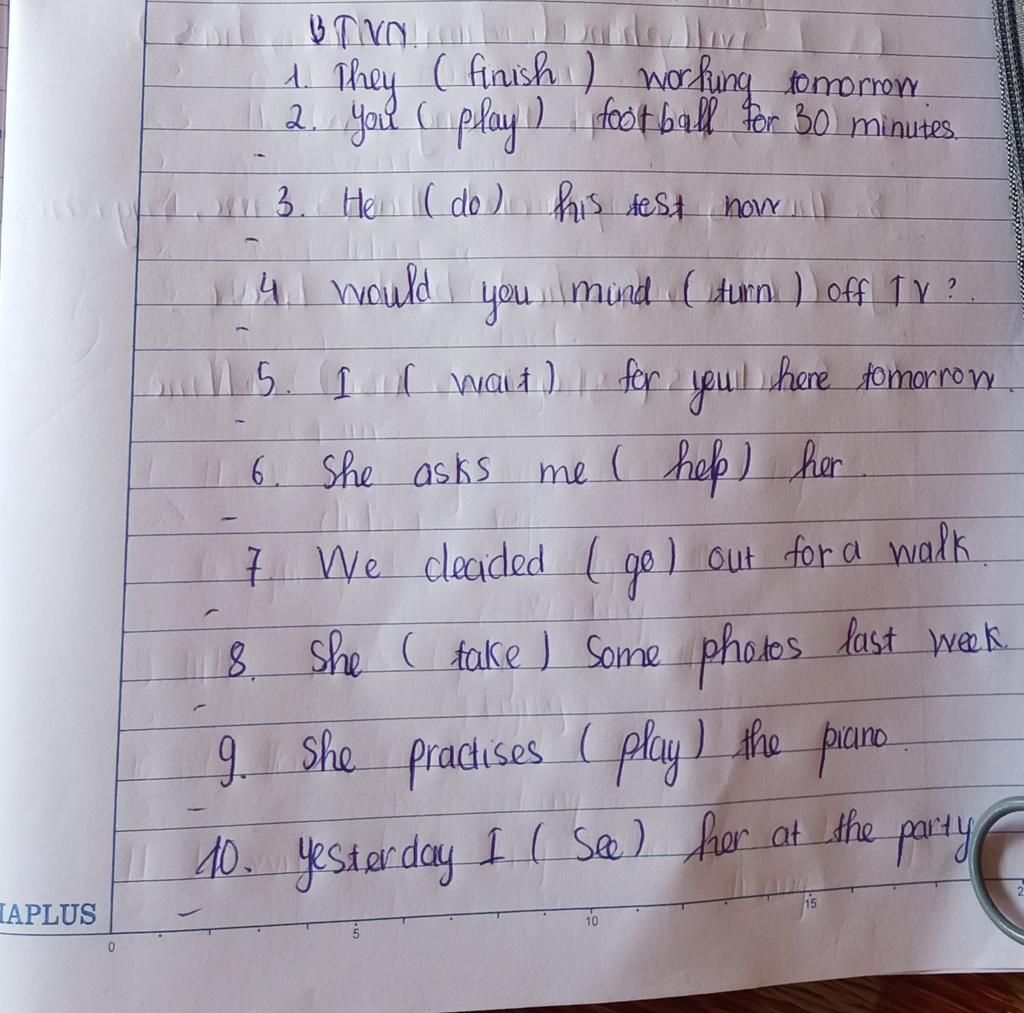 BTVN.
1. They ( finish ) working tomorrow.
2. you ( play ) football for 30 minutes.
3. He ( do ) this test now
4 would you mind ( turn ) off TV ?.
5. I ( wait ) for you here tomorrow.
6. She asks me ( help ) her
7 We decided ( go ) out for a walk.
8. She ( take ) some photos last week.
9. She practises ( play ) the piano.
10. yesterday I ( see ) her at the party
IAPLUS
0 5 10 15 2